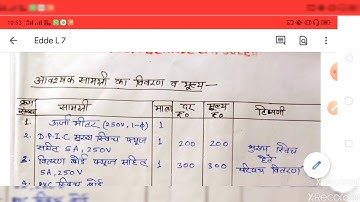 10:53
Edde L 7
आवश्यक सामग्री का विवरण व मूल्य—
क्रम संख्या सामग्री मात्रा दर रु० मूल्य रु० टिप्पणी
1. ऊर्जा मीटर (250V, 1-ϕ) 1
2. D.P.I.C मुख्य स्विच फ्यूज 1 200 200 मुख्य स्विच
सहित 5A, 250V हेतु
3. वितरण बोर्ड फ्यूज सहित 1 300 300 परिपथ वितरण
5A, 250V
XRecorder